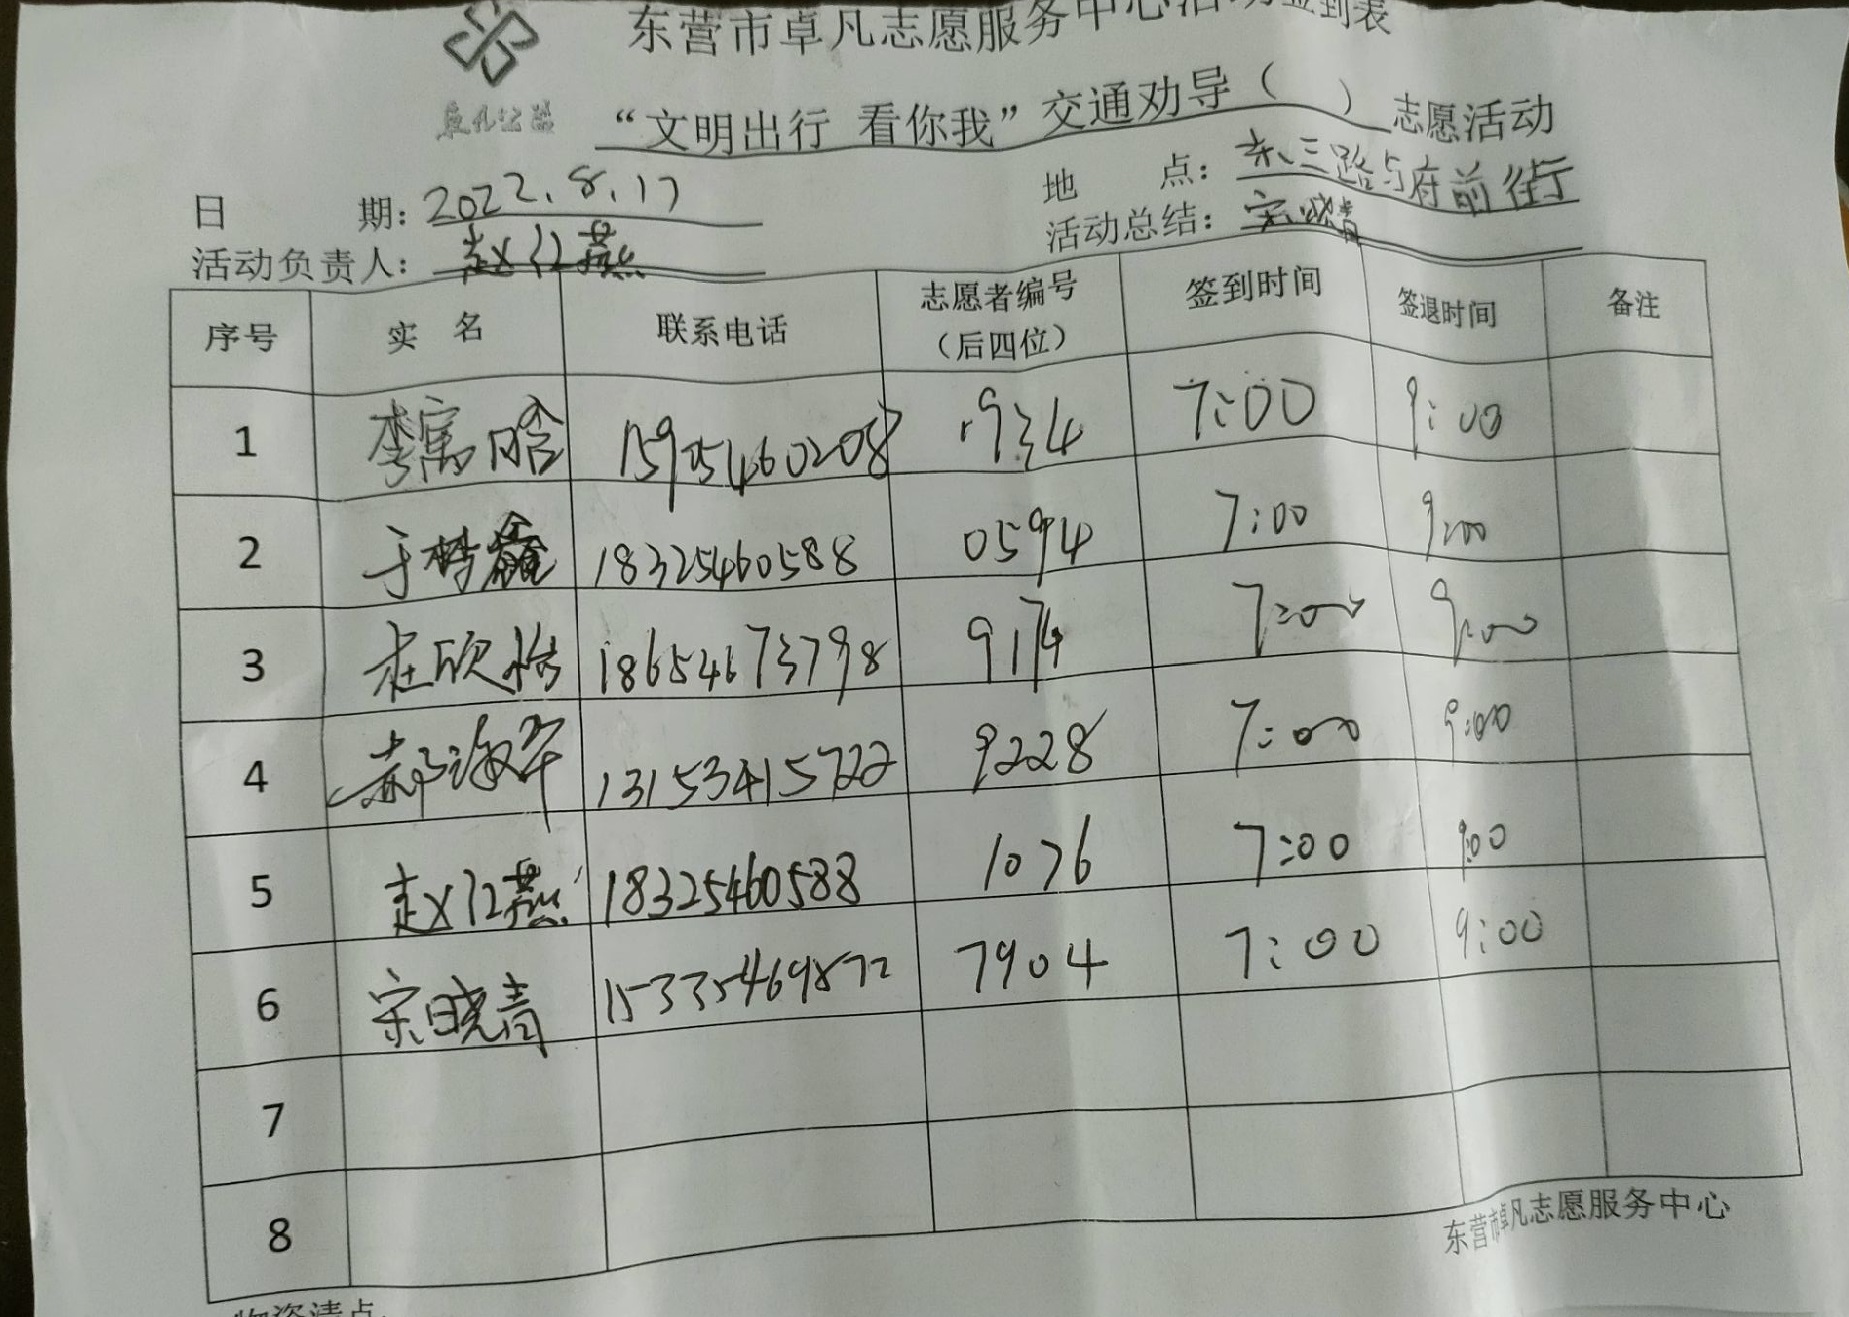 东营市卓凡志愿服务中心活动签到表
卓凡公益
“文明出行 看你我”交通劝导（ ）志愿活动
日 期：2022.8.17 地 点：东三路与府前街
活动负责人：赵红燕 活动总结：宋晓青
序号 实 名 联系电话 志愿者编号（后四位） 签到时间 签退时间 备注
1 李寓晗 15954660208 1934 7:00 9:00
2 于梓鑫 18325460588 0594 7:00 9:00
3 杜欣怡 18654673798 9174 7:00 9:00
4 郝淑军 13153415722 9228 7:00 9:00
5 赵红燕 18325460588 1076 7:00 9:00
6 宋晓青 15335469872 7904 7:00 9:00
7
8
东营市卓凡志愿服务中心
物资清点